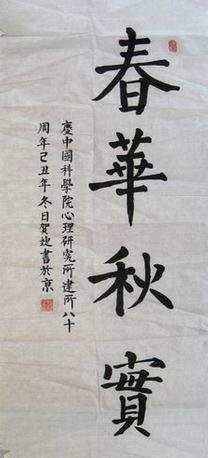 春華秋實
慶中國科學院心理研究所建所八十
周年己丑年冬日賀建書於京